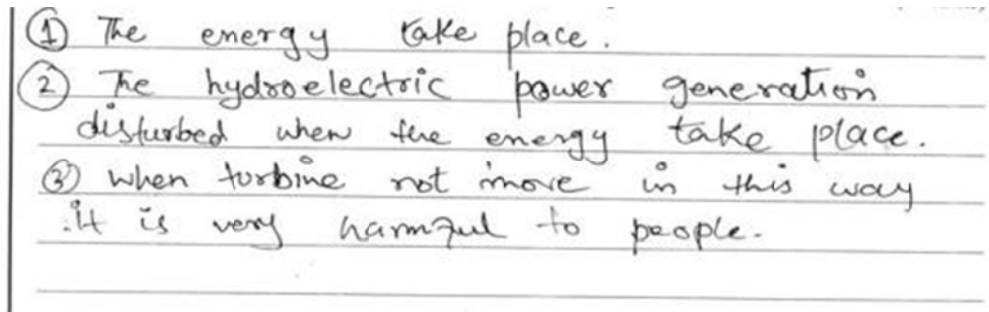 ① The energy take place.
② The hydroelectric power generation
disturbed when the energy take place.
③ when turbine not move in this way
it is very harmful to people.